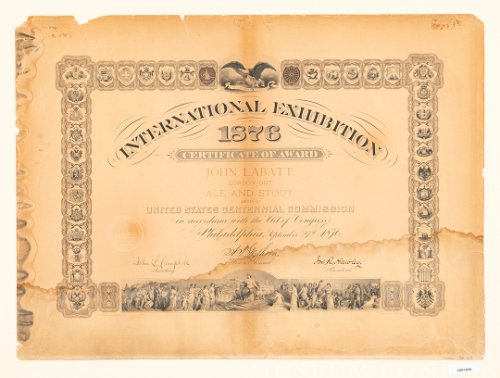 INTERNATIONAL EXHIBITION
1876
CERTIFICATE OF AWARD
JOHN LABATT
LONDON, ONT.
ALE AND STOUT
UNITED STATES CENTENNIAL COMMISSION
in accordance with the Act of Congress
Philadelphia, September 27th 1876.
John L. Campbell
Secretary
Jos. R. Hawley
President